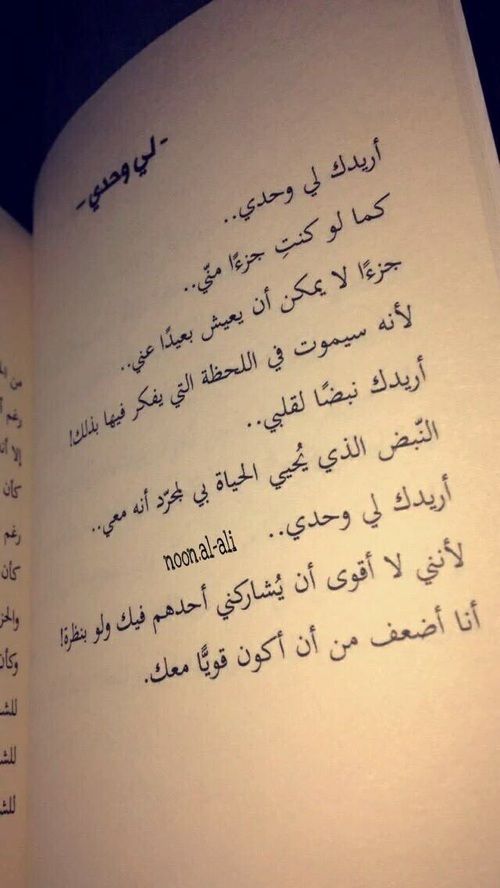 - لي وحدي -
أريدك لي وحدي..
كما لو كنتِ جزءًا منّي..
جزءًا لا يمكن أن يعيش بعيدًا عني..
لأنه سيموت في اللحظة التي يفكر فيها بذلك!
أريدك نبضًا لقلبي..
النّبض الذي يُحيي الحياة بي لمجرّد أنه معي..
أريدك لي وحدي..
noon.al-ali
لأنني لا أقوى أن يُشاركني أحدهم فيك ولو بنظرة!
أنا أضعف من أن أكون قويًّا معك.
رغم
كأن
رغم
كأن
وكأن